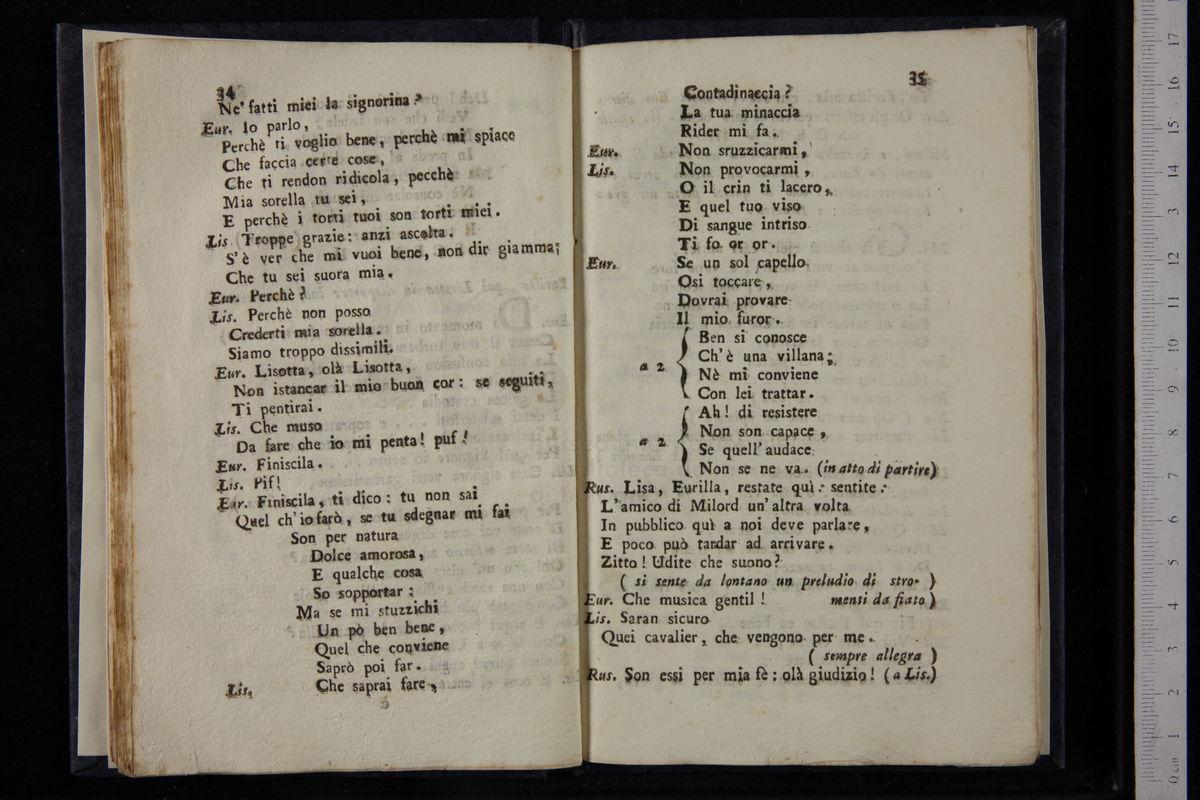 34
Ne' fatti miei la signorina?
Eur. Io parlo,
Perchè ti voglio bene, perchè mi spiace
Che faccia certe cose,
Che ti rendon ridicola, pecchè
Mia sorella tu sei,
E perchè i torti tuoi son torti miei.
Lis (Troppe grazie: anzi ascolta.
S'è ver che mi vuoi bene, non dir giammai
Che tu sei suora mia.
Eur. Perchè?
Lis. Perchè non posso
Crederti mia sorella.
Siamo troppo dissimili.
Eur. Lisotta, olà Lisotta,
Non istancar il mio buon cor: se seguiti,
Ti pentirai.
Lis. Che muso
Da fare che io mi penta! puf!
Eur. Finiscila.
Lis. Pif!
Eur. Finiscila, ti dico: tu non sai
Quel ch'io farò, se tu sdegnar mi fai
Son per natura
Dolce amorosa,
E qualche cosa
So sopportar:
Ma se mi stuzzichi
Un pò ben bene,
Quel che conviene
Saprò poi far.
Lis. Che saprai fare,
35
Contadinaccia?
La tua minaccia
Rider mi fa.
Eur. Non sruzzicarmi,
Lis. Non provocarmi,
O il crin ti lacero,
E quel tuo viso
Di sangue intriso
Ti fo or or.
Eur. Se un sol capello
Osi toccare,
Dovrai provare
Il mio furor.
Ben si conosce
Ch'è una villana;
a 2 Nè mi conviene
Con lei trattar.
Ah! di resistere
Non son capace,
a 2 Se quell' audace
Non se ne va. (in atto di partire)
Rus. Lisa, Eurilla, restate quì: sentite:
L'amico di Milord un' altra volta
In pubblico quì a noi deve parlare,
E poco può tardar ad arrivare.
Zitto! Udite che suono?
( si sente da lontano un preludio di stro- )
Eur. Che musica gentil! menti da fiato )
Lis. Saran sicuro
Quei cavalier, che vengono per me.
( sempre allegra )
Rus. Son essi per mia fè: olà giudizio! ( a Lis.)